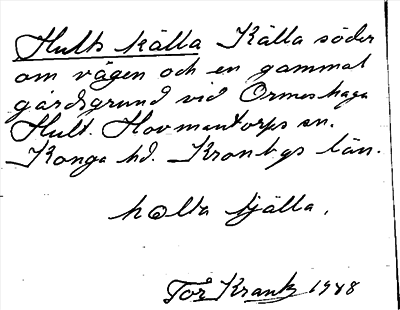 Hults källa Källa söder
om vägen och en gammal
gårdsgrund vid Ormeshaga
Hult. Hovmantorps sn.
Konga hd. Kronbgs län.
källa.
Tor Krantz 1948